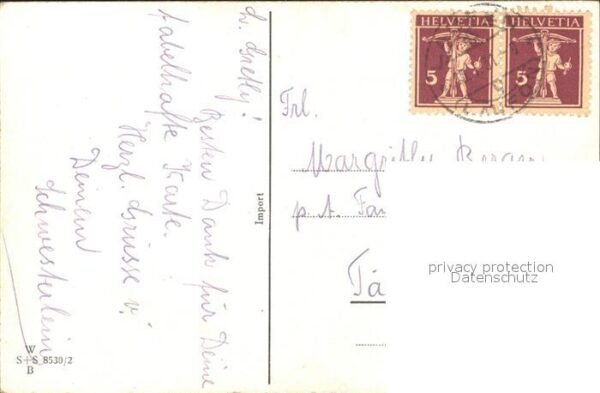 L. Gretly!
Besten Dank für Deine
fabelhafte Karte.
Herzl. Grüsse v.
Deinem
Schwesterlein
W
S+S 8530/2
B
Import
HELVETIA
5
HELVETIA
5
Frl.
Margrithly
p. A. Fam
Tä
privacy protection
Datenschutz